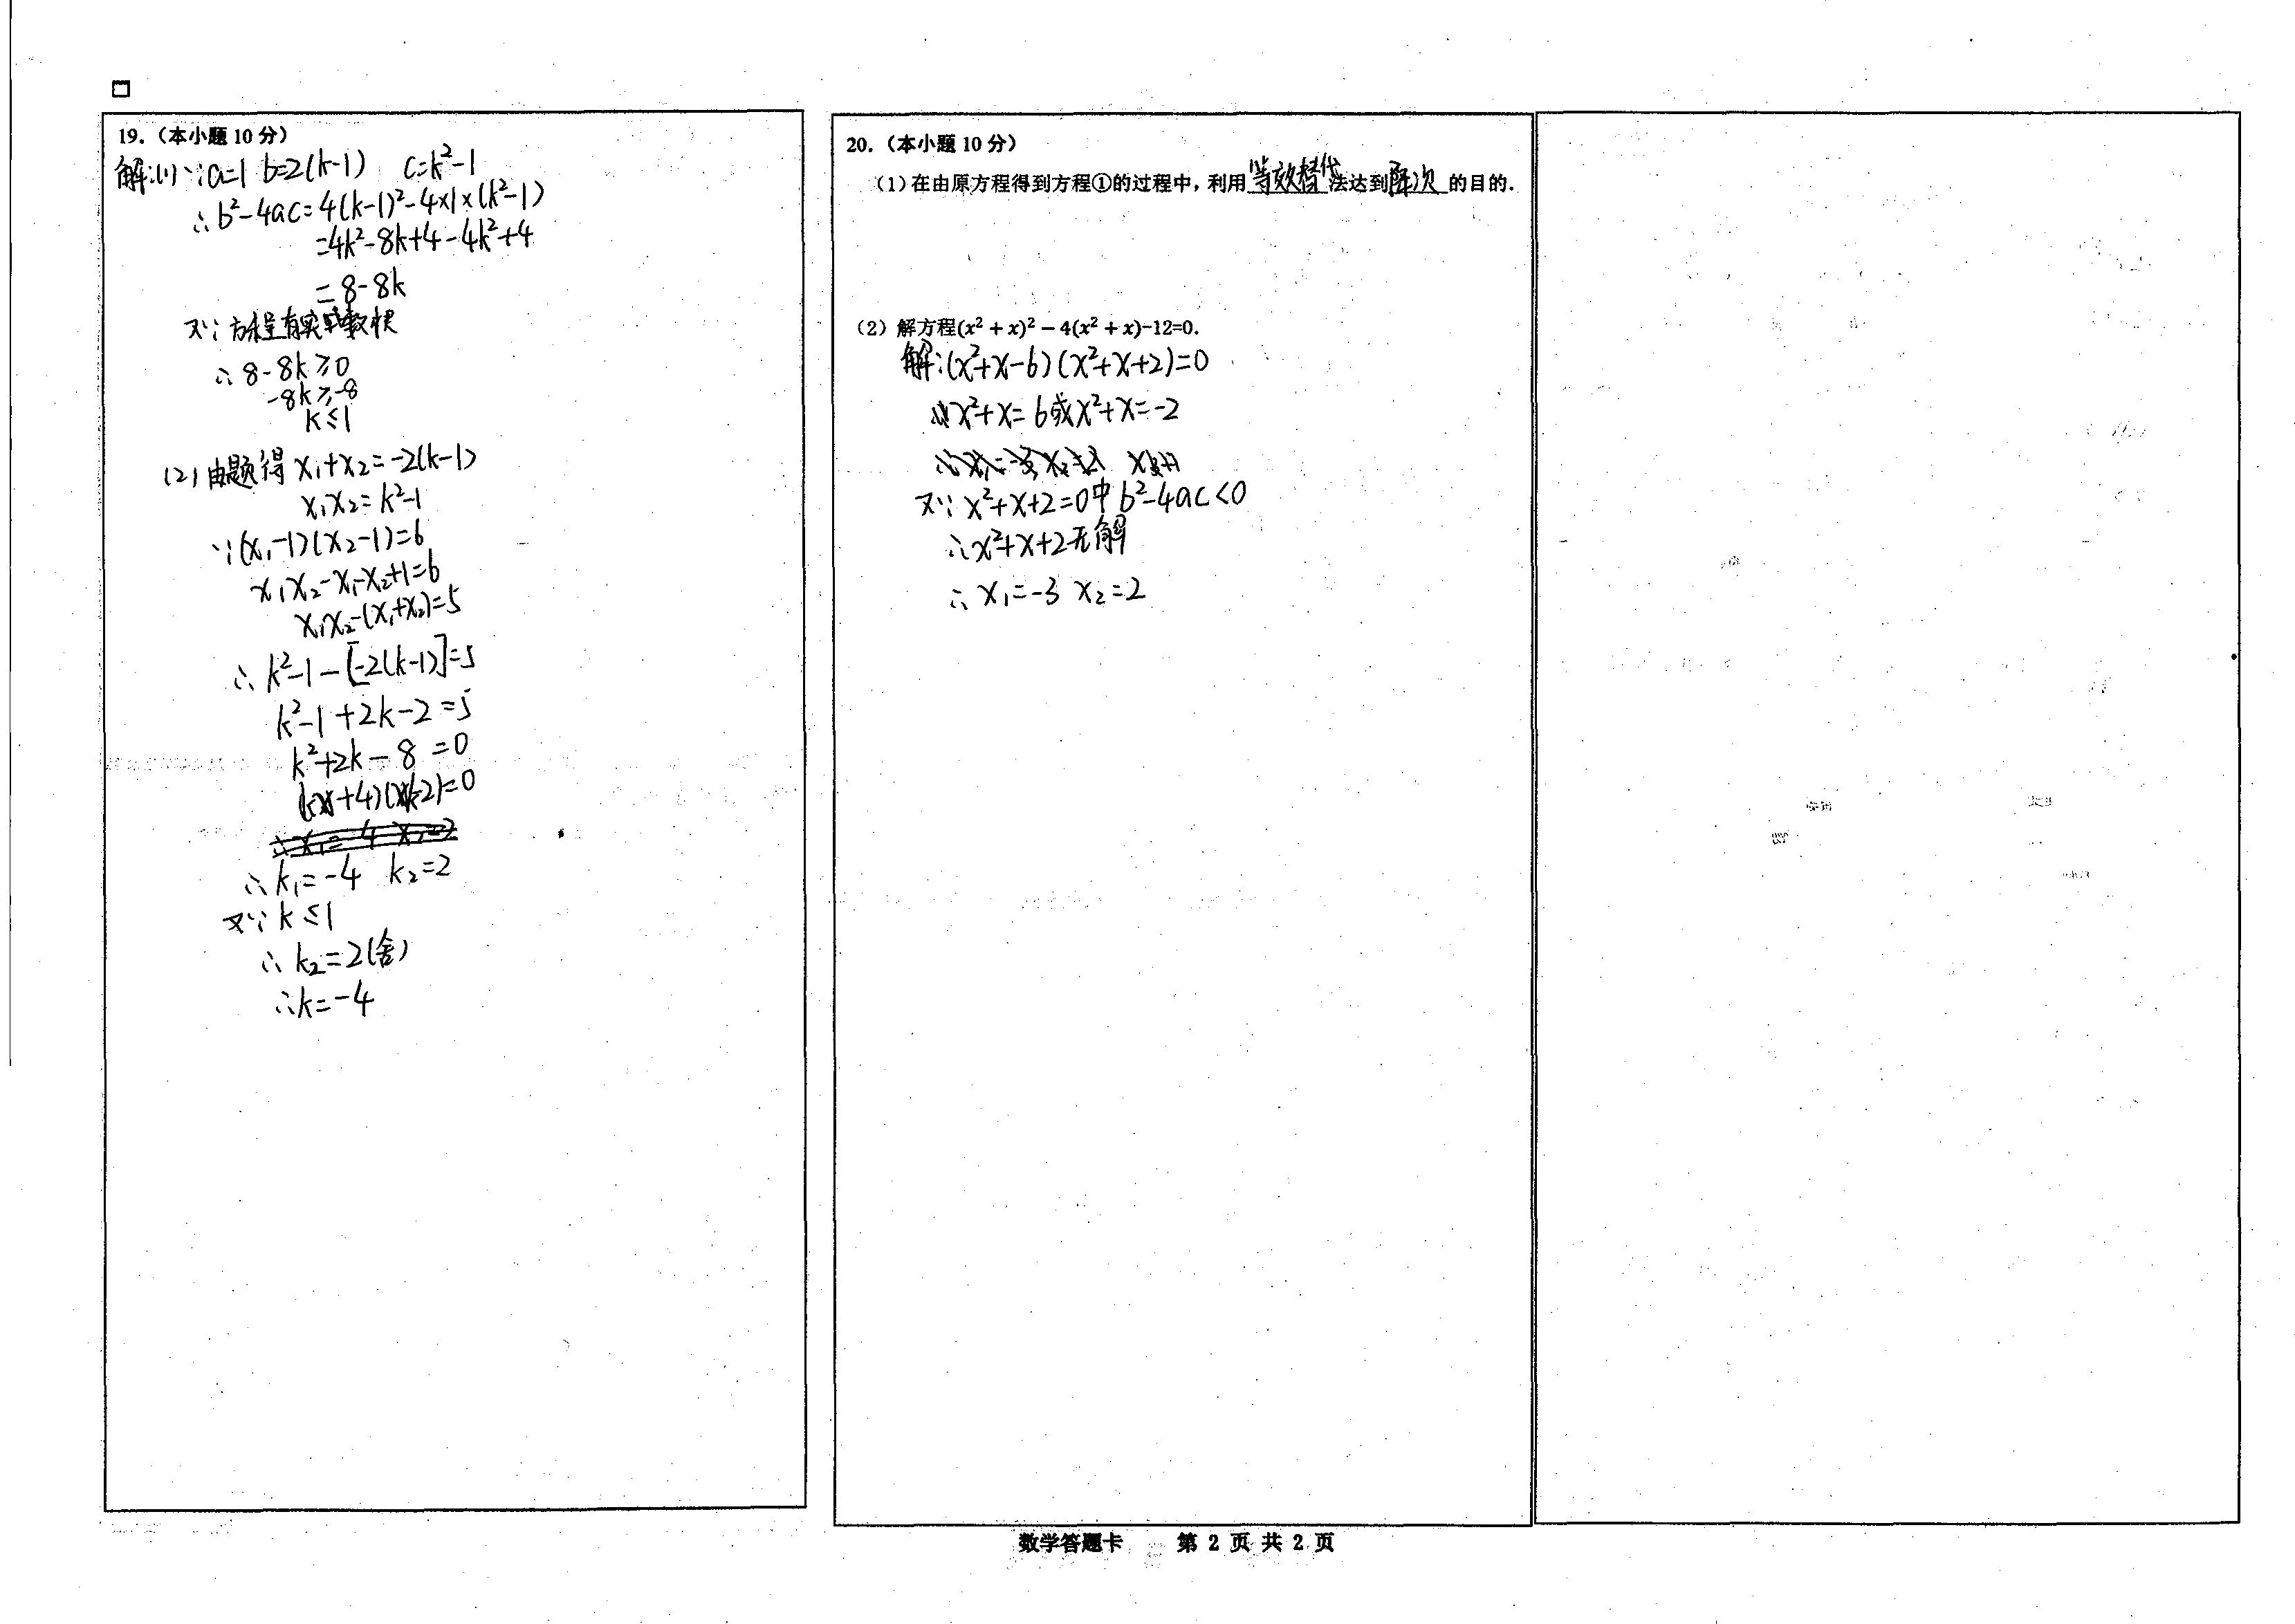 19.（本小题 10 分）
解:(1)∵a=1 b=2(k-1) c=k²-1
∴b²-4ac=4(k-1)²-4×1×(k²-1)
=4k²-8k+4-4k²+4
=8-8k
又∵方程有实数根
∴8-8k≥0
-8k≥-8
k≤1
(2)由题得 x₁+x₂=-2(k-1)
x₁x₂=k²-1
∵(x₁-1)(x₂-1)=6
x₁x₂-x₁-x₂+1=6
x₁x₂-(x₁+x₂)=5
∴k²-1-[-2(k-1)]=5
k²-1+2k-2=5
k²+2k-8=0
(k+4)(k-2)=0
∴k₁=-4 k₂=2
又∵k≤1
∴k₂=2(舍)
∴k=-4
20.（本小题 10 分）
（1）在由原方程得到方程①的过程中，利用等效替代法达到降次的目的.
（2）解方程(x² + x)² − 4(x² + x)-12=0.
解:(x²+x-6)(x²+x+2)=0
x²+x=6或x²+x=-2
又∵x²+x+2=0中b²-4ac<0
∴x²+x+2无解
∴x₁=-3 x₂=2
数学答题卡 第 2 页 共 2 页